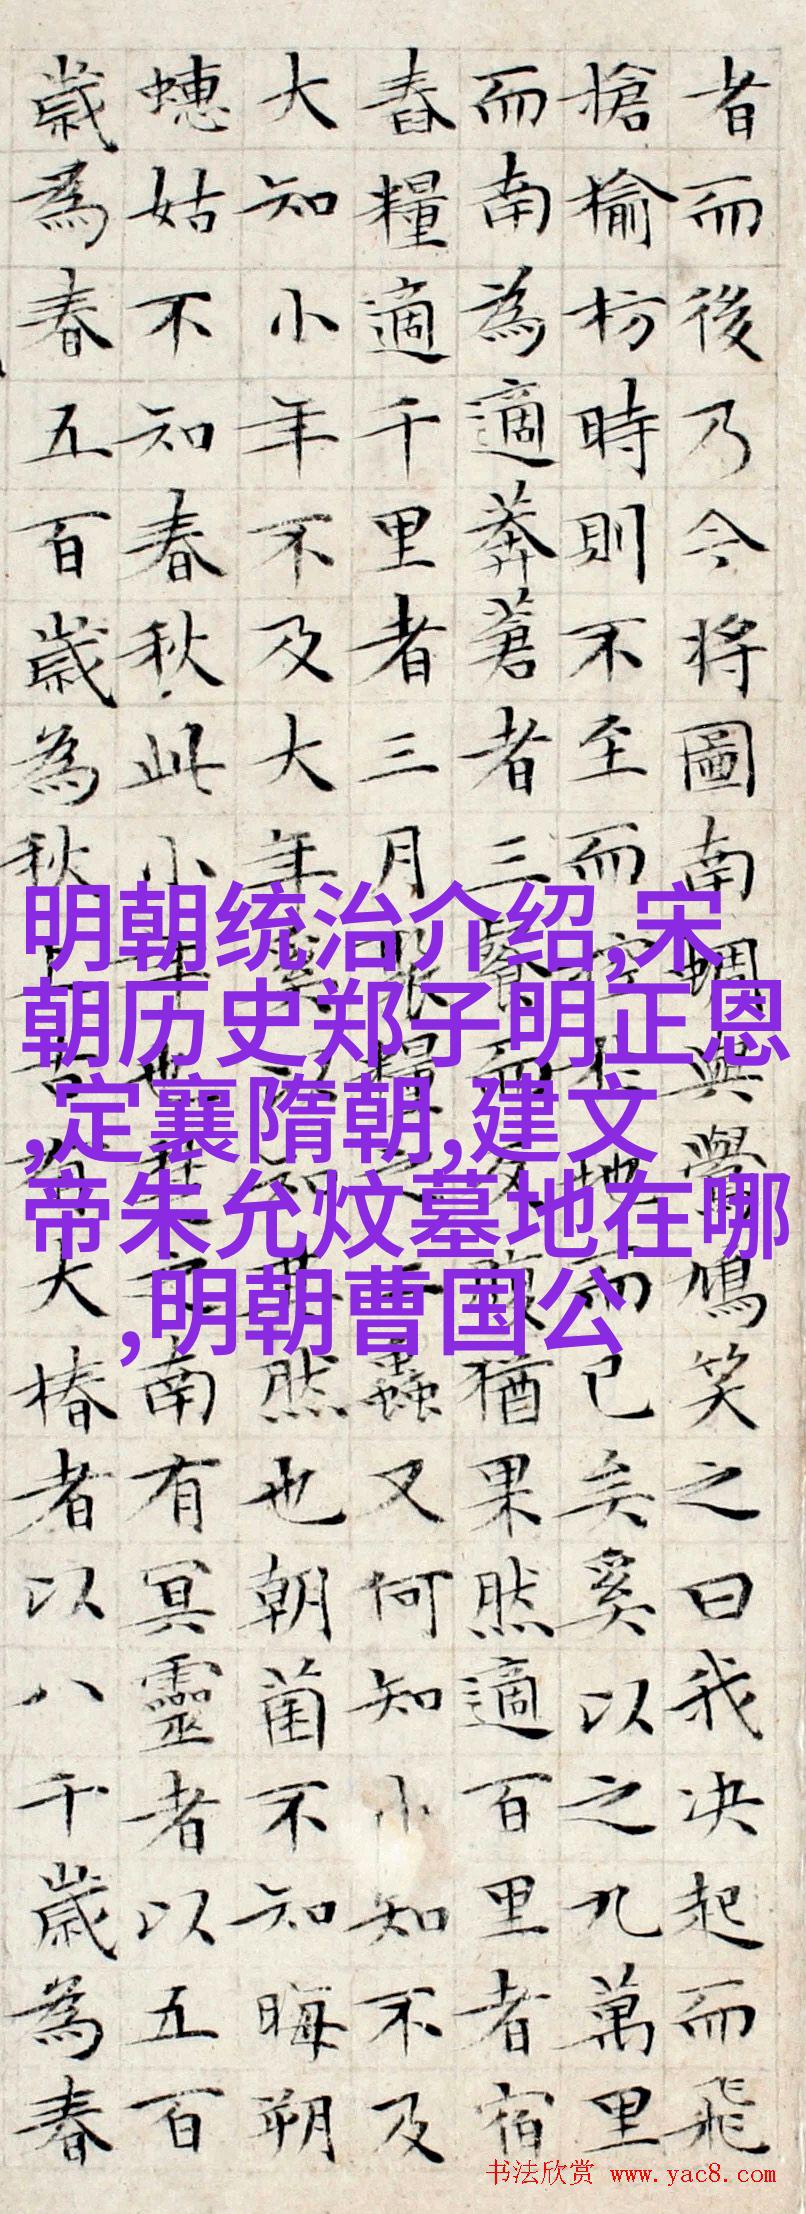 者而後乃今将圖南蜩與鷽鳩笑之曰我决起而飛
搶榆枋時則不至而控於地而已矣奚以之九萬里
而南為適莽蒼者三餐而反腹猶果然適百里者宿
舂糧適千里者三月聚糧之二蟲又何知小知不及
大知小年不及大年奚以知其然也朝菌不知晦朔
蟪姑不知春秋此小年也楚之南有冥靈者以五百
歲為春五百歲為秋上古有大椿者以八千歲為春
明朝统治介绍,宋
朝历史郑子明正恩
,定襄隋朝,建文
帝朱允炆墓地在哪
,明朝曹国公
书法欣赏 www.yac8.com